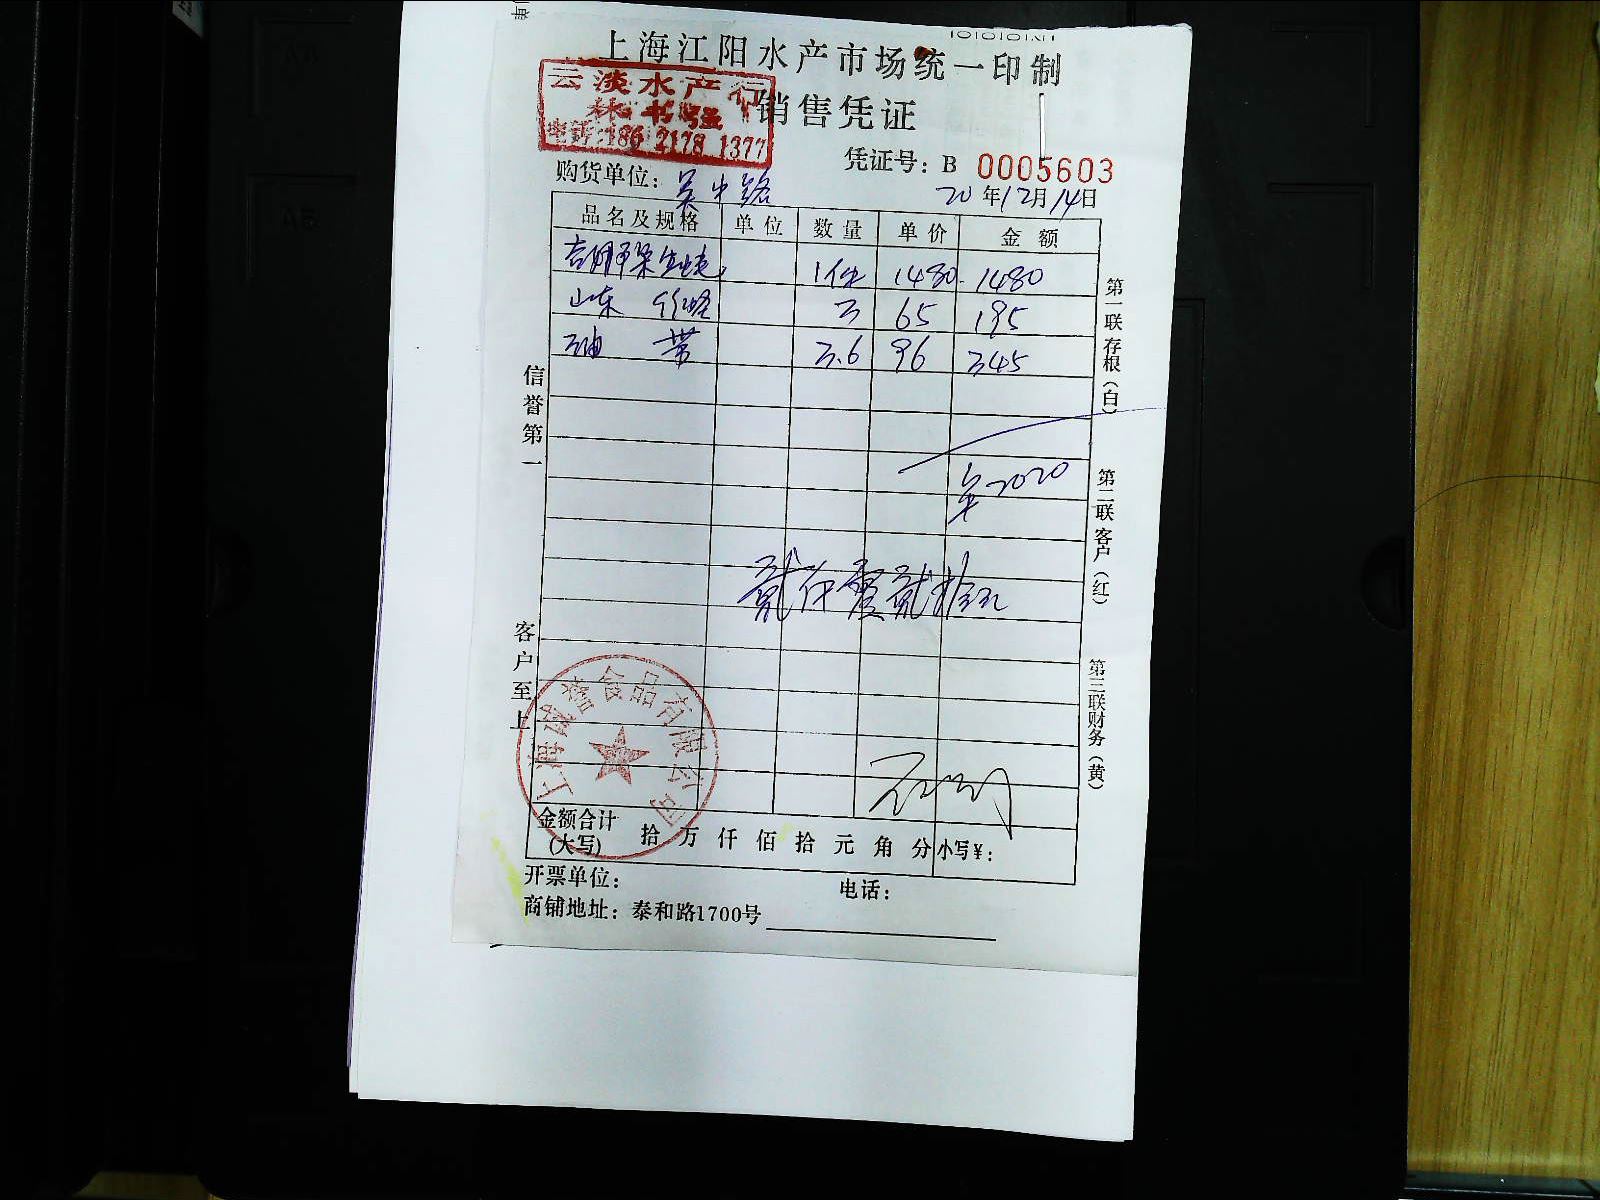 上海江阳水产市场统一印制
云淡水产行
林书强
电话:186 2178 1377
销售凭证
凭证号: B 0005603
购货单位: 吴中路
20年12月14日
品名及规格 单位 数量 单价 金额
1件 1480. 1480
山东 3 65 195
油 带 3.6 96 345
¥2020
贰仟零贰拾元
信誉第一
客户至上
第一联 存根(白)
第二联 客户(红)
第三联 财务(黄)
上海诚誉食品有限公司
金额合计(大写) 拾 万 仟 佰 拾 元 角 分 小写¥:
开票单位: 电话:
商铺地址: 泰和路1700号